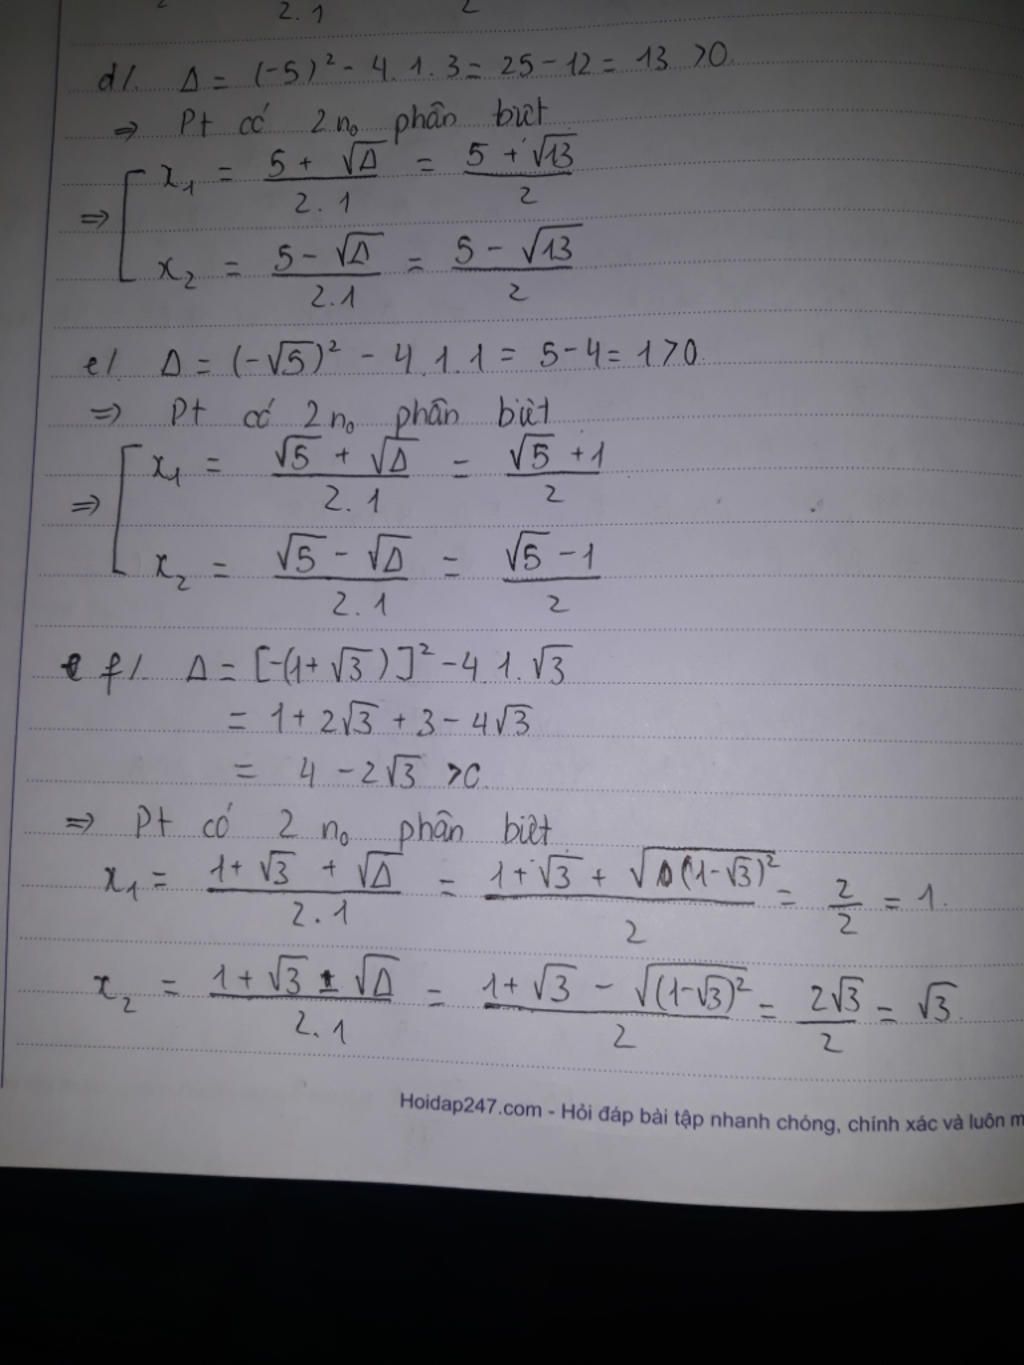 2.1 2
d/. Δ = (-5)² - 4.1.3 = 25 - 12 = 13 >0.
⇒ Pt có 2 n₀ phân biệt
x₁ = (5 + √Δ)/(2.1) = (5 + √13)/2
⇒ [
x₂ = (5 - √Δ)/(2.1) = (5 - √13)/2
e/. Δ = (-√5)² - 4.1.1 = 5 - 4 = 1 >0.
⇒ Pt có 2 n₀ phân biệt
x₁ = (√5 + √Δ)/(2.1) = (√5 + 1)/2
⇒ [
x₂ = (√5 - √Δ)/(2.1) = (√5 - 1)/2
f/. Δ = [-(1+√3)]² - 4.1.√3
= 1 + 2√3 + 3 - 4√3
= 4 - 2√3 >0.
⇒ Pt có 2 n₀ phân biệt
x₁ = (1+√3 + √Δ)/(2.1) = (1+√3 + √(1-√3)²)/2 = 2/2 = 1.
x₂ = (1+√3 - √Δ)/(2.1) = (1+√3 - √(1-√3)²)/2 = 2√3/2 = √3.
Hoidap247.com - Hỏi đáp bài tập nhanh chóng, chính xác và luôn m